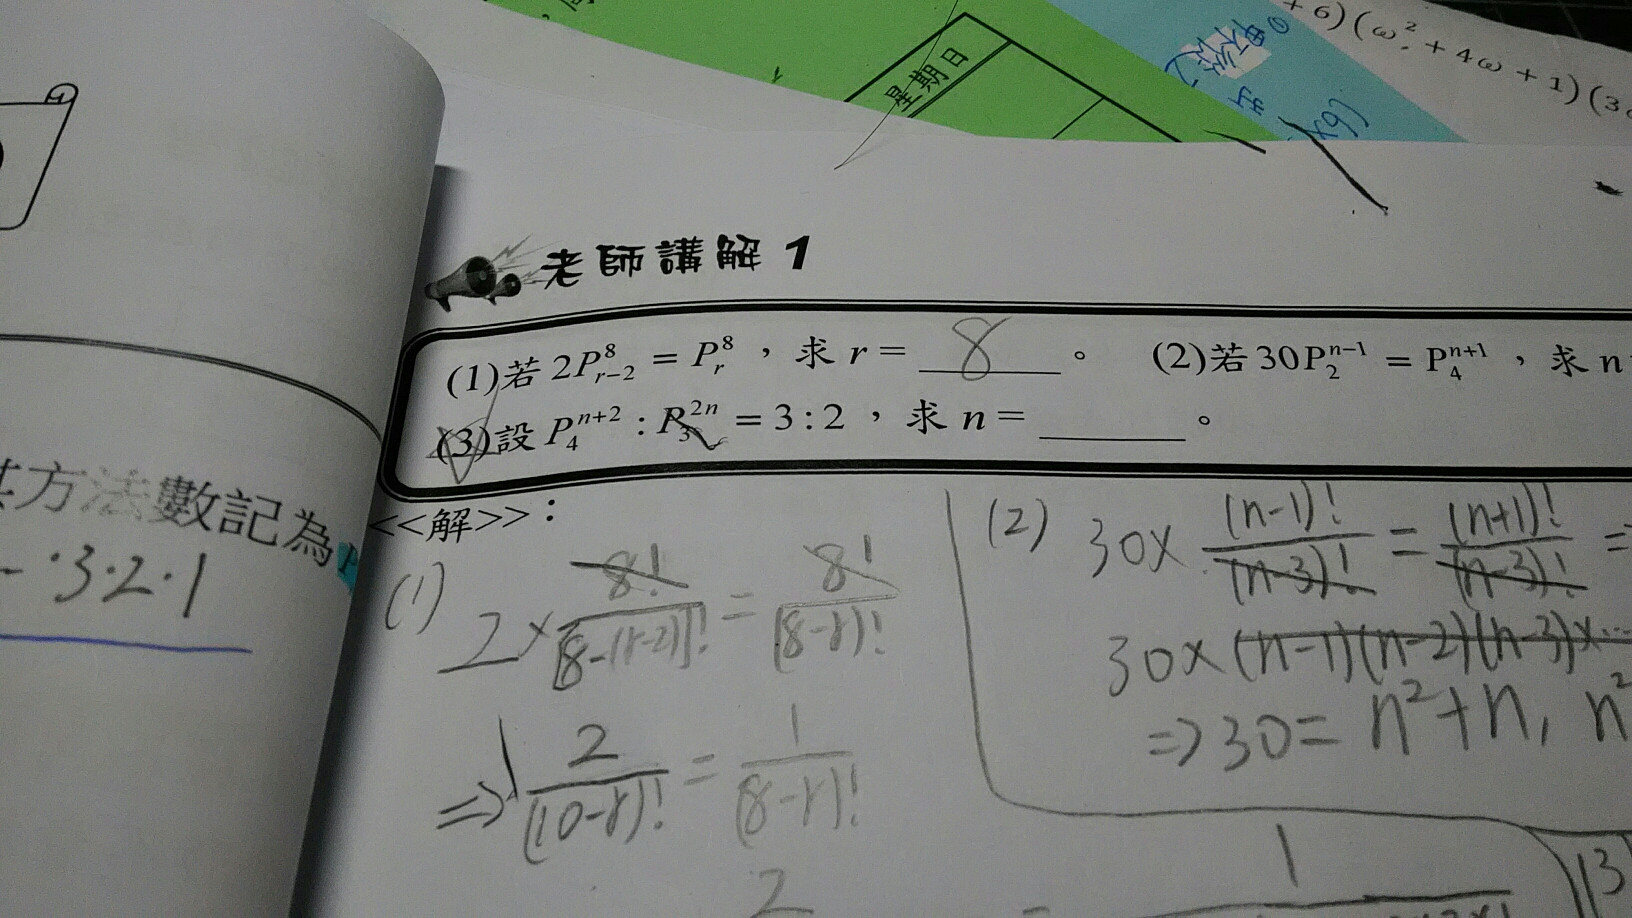 星期日
+6)(ω² + 4ω + 1)(3
老師講解 1
(1)若 2P⁸ᵣ₋₂ = P⁸ᵣ ，求 r = 8 。 (2)若 30P₂ⁿ⁻¹ = P₄ⁿ⁺¹ ，求 n
(3)設 P₄ⁿ⁺² : P₃²ⁿ = 3 : 2 ，求 n = ______ 。
<<解>>：
其方法數記為
·3·2·1
(1) 2 × 8!/[8-(r-2)]! = 8!/(8-r)!
⇒ 2/(10-r)! = 1/(8-r)!
2
(2) 30 × (n-1)!/(n-3)! = (n+1)!/(n-3)! ⇒
30 × (n-1)(n-2)(n-3)×···
⇒ 30 = n² + n, n²
1
(3